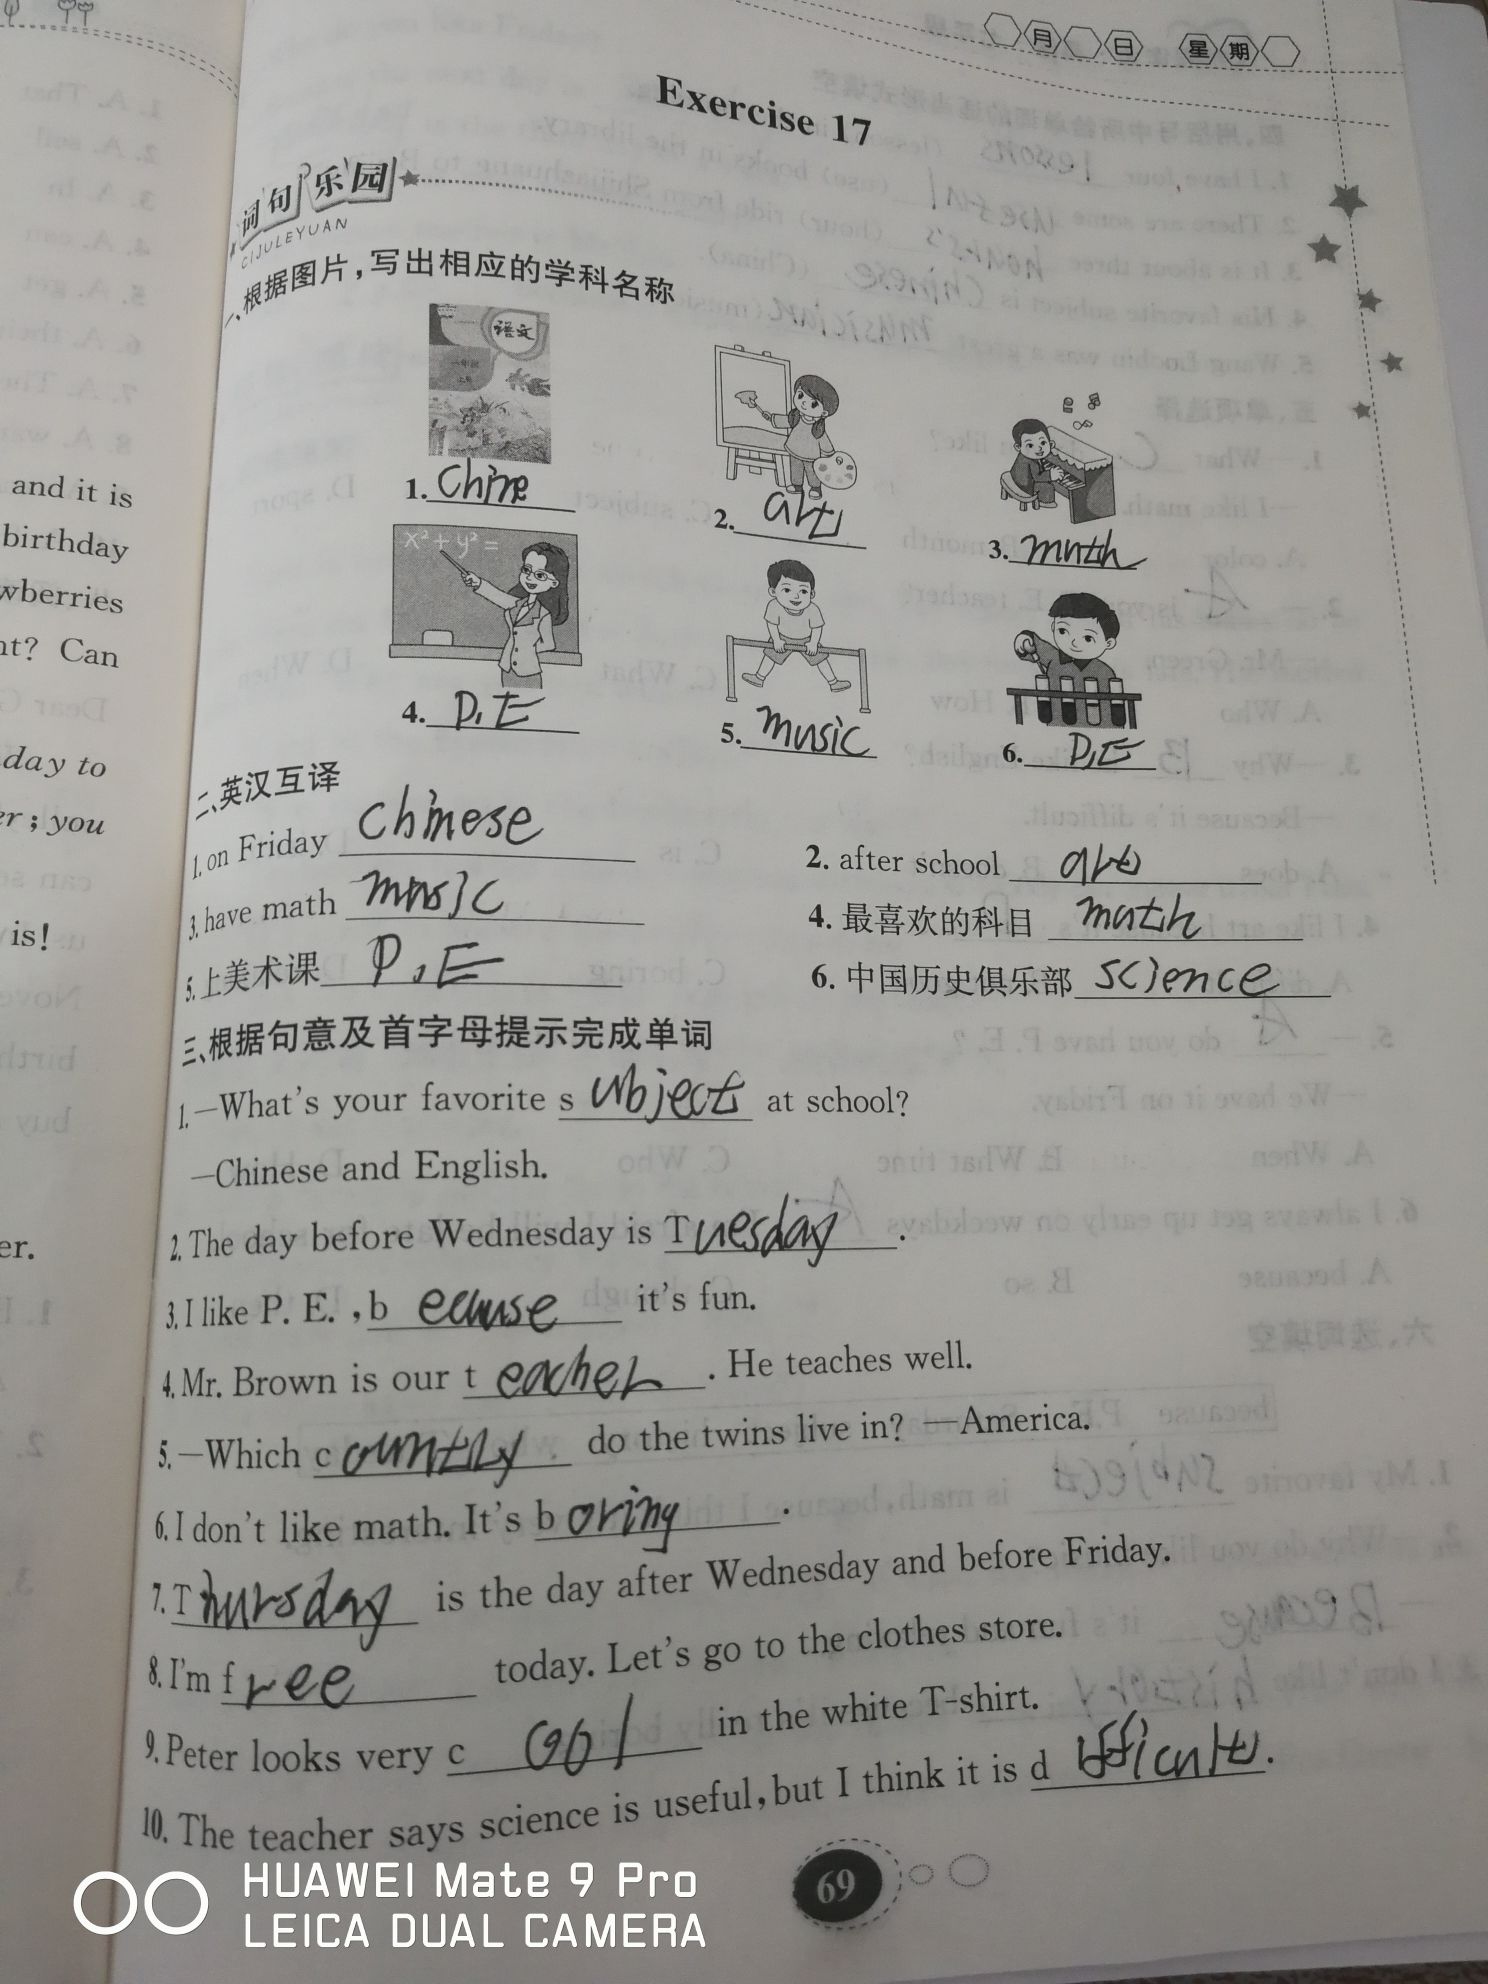 月 日 星 期
Exercise 17
词句乐园
CIJULEYUAN
一、根据图片,写出相应的学科名称
语文
x² + y² =
1. Chine
2. art
3. math
4. P.E
5. music
6. P.E
二、英汉互译
1. on Friday Chinese
2. after school art
3. have math music
4. 最喜欢的科目 math
5. 上美术课 P.E
6. 中国历史俱乐部 science
三、根据句意及首字母提示完成单词
1. —What's your favorite subject at school?
—Chinese and English.
2. The day before Wednesday is Tuesday.
3. I like P. E. , because it's fun.
4. Mr. Brown is our teacher. He teaches well.
5. —Which country do the twins live in? —America.
6. I don't like math. It's boring.
7. Thursday is the day after Wednesday and before Friday.
8. I'm free today. Let's go to the clothes store.
9. Peter looks very c cool in the white T-shirt.
10. The teacher says science is useful, but I think it is difficult.
69
and it is
birthday
wberries
nt? Can
day to
er; you
is!
er.
HUAWEI Mate 9 Pro
LEICA DUAL CAMERA